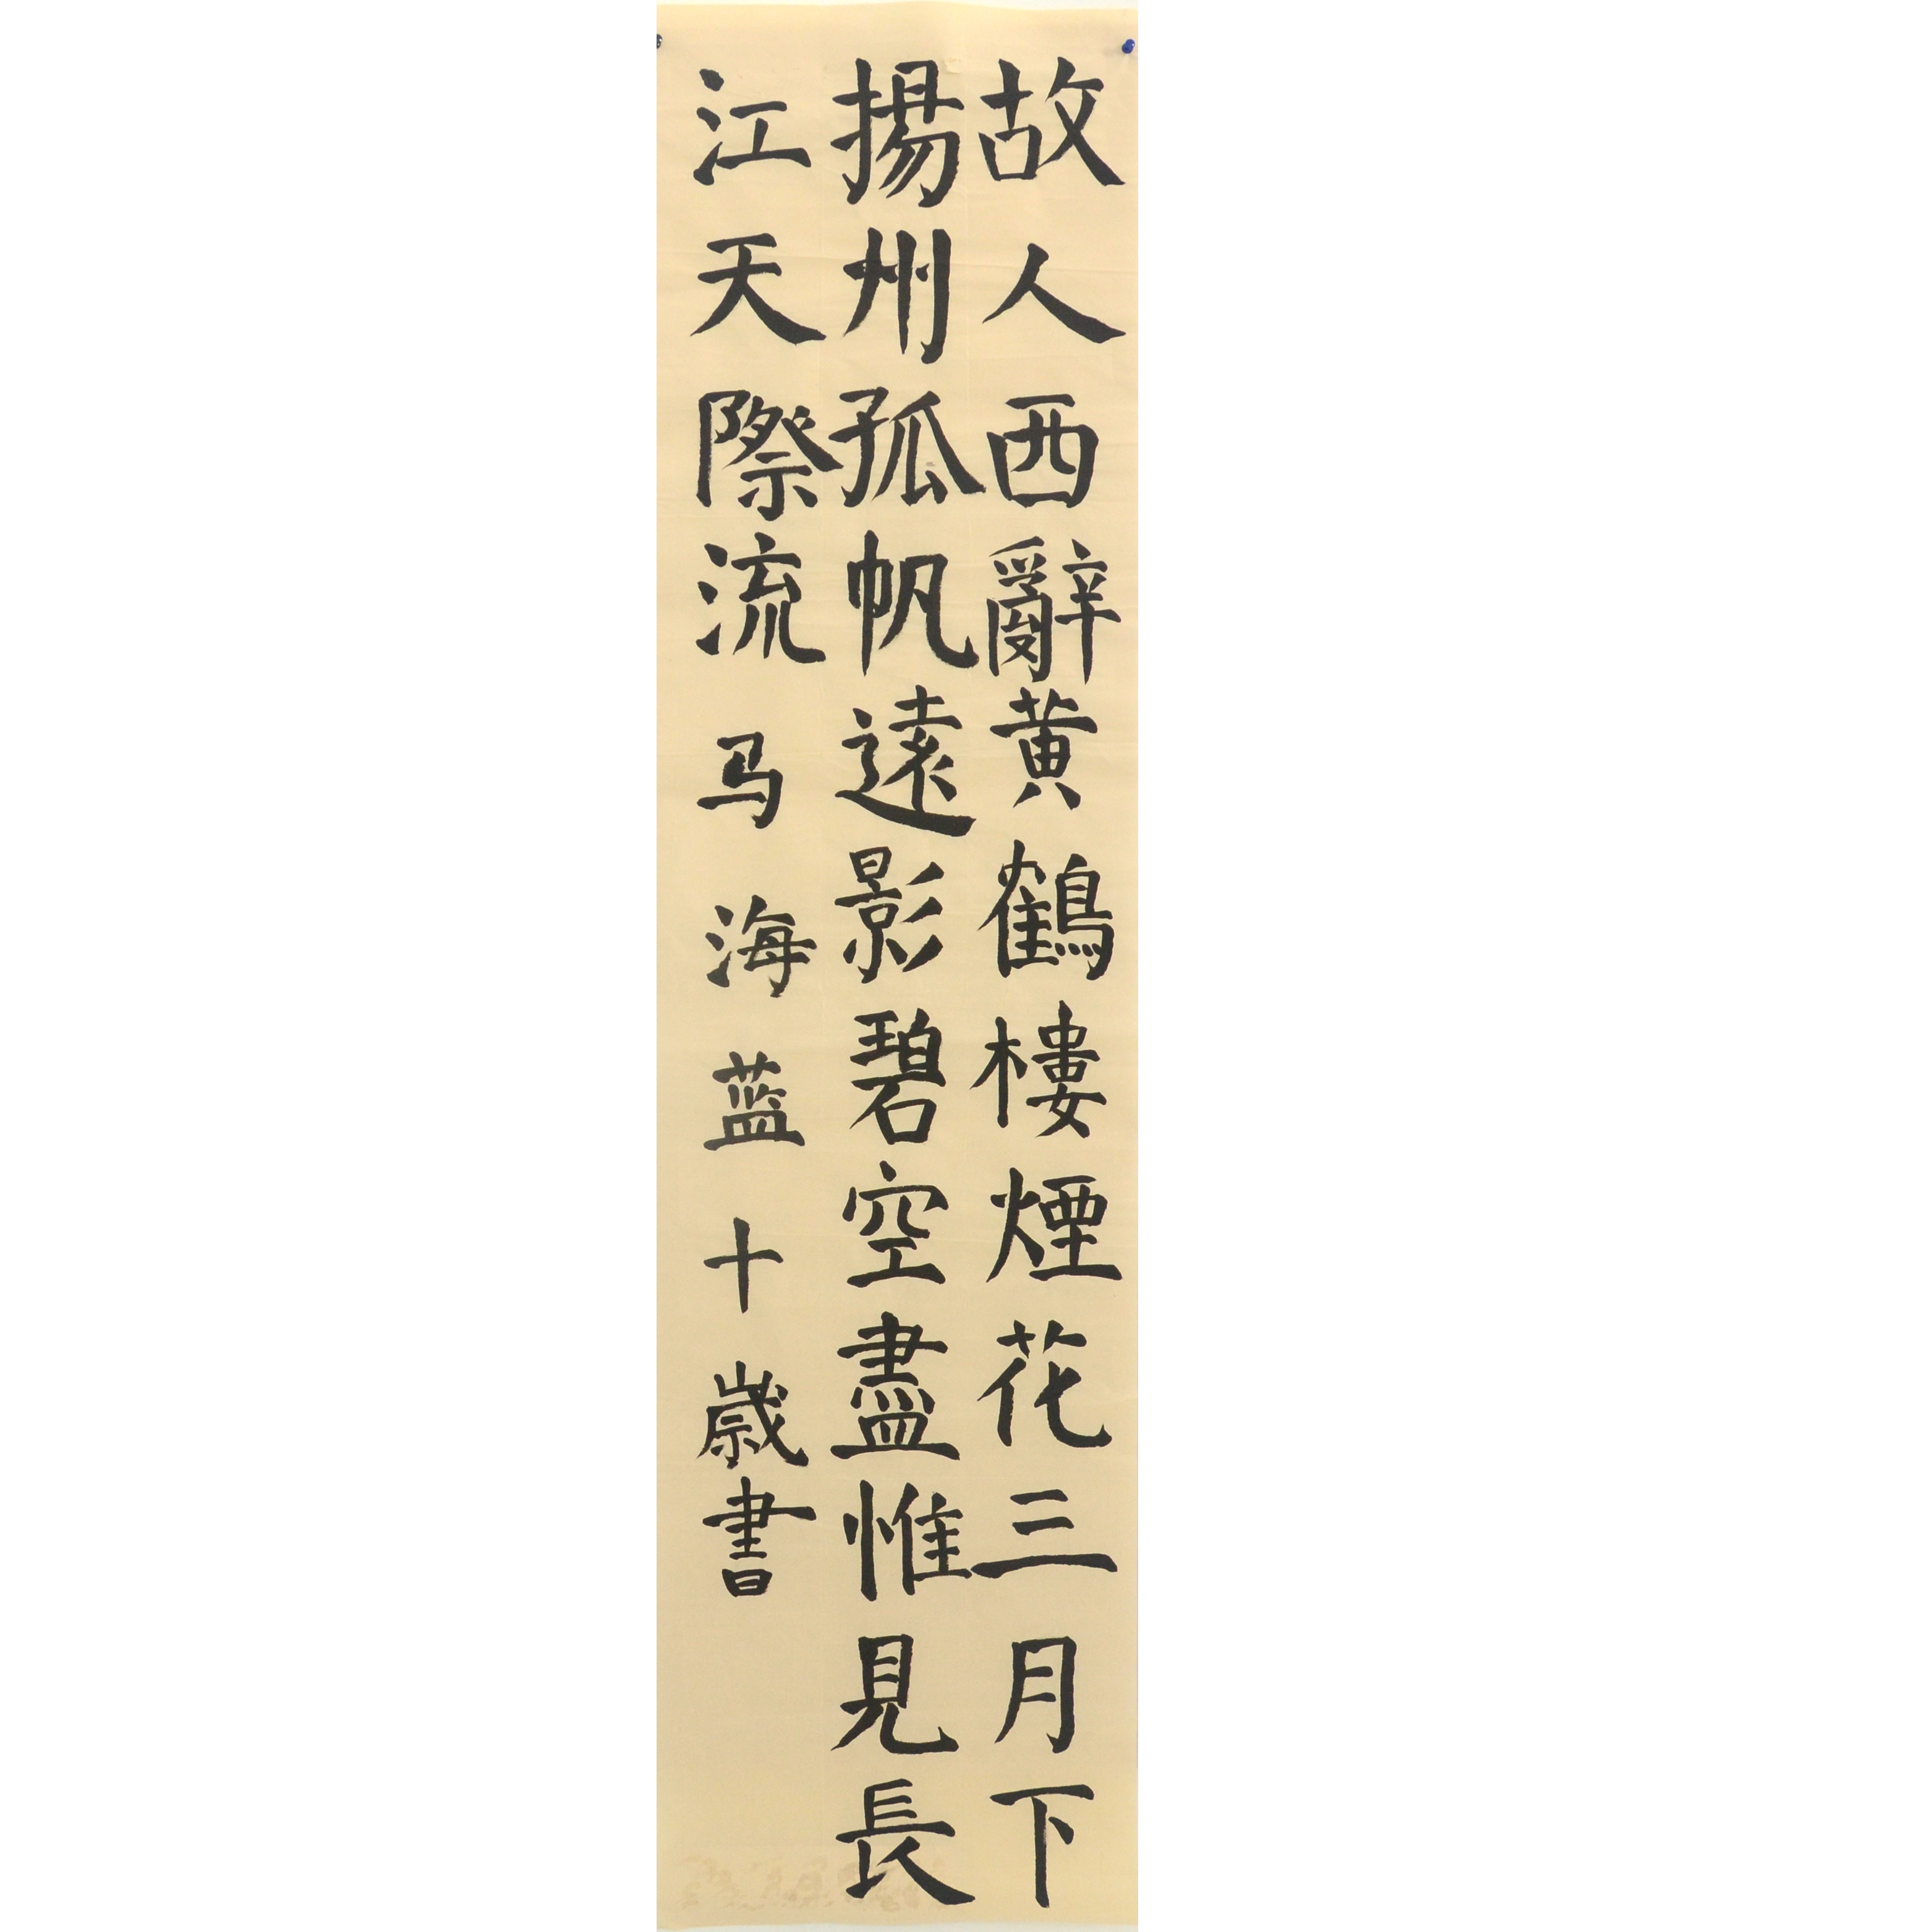 故人西辭黄鶴樓煙花三月下
揚州孤帆遠影碧空盡惟見長
江天際流 马海蓝十歳書